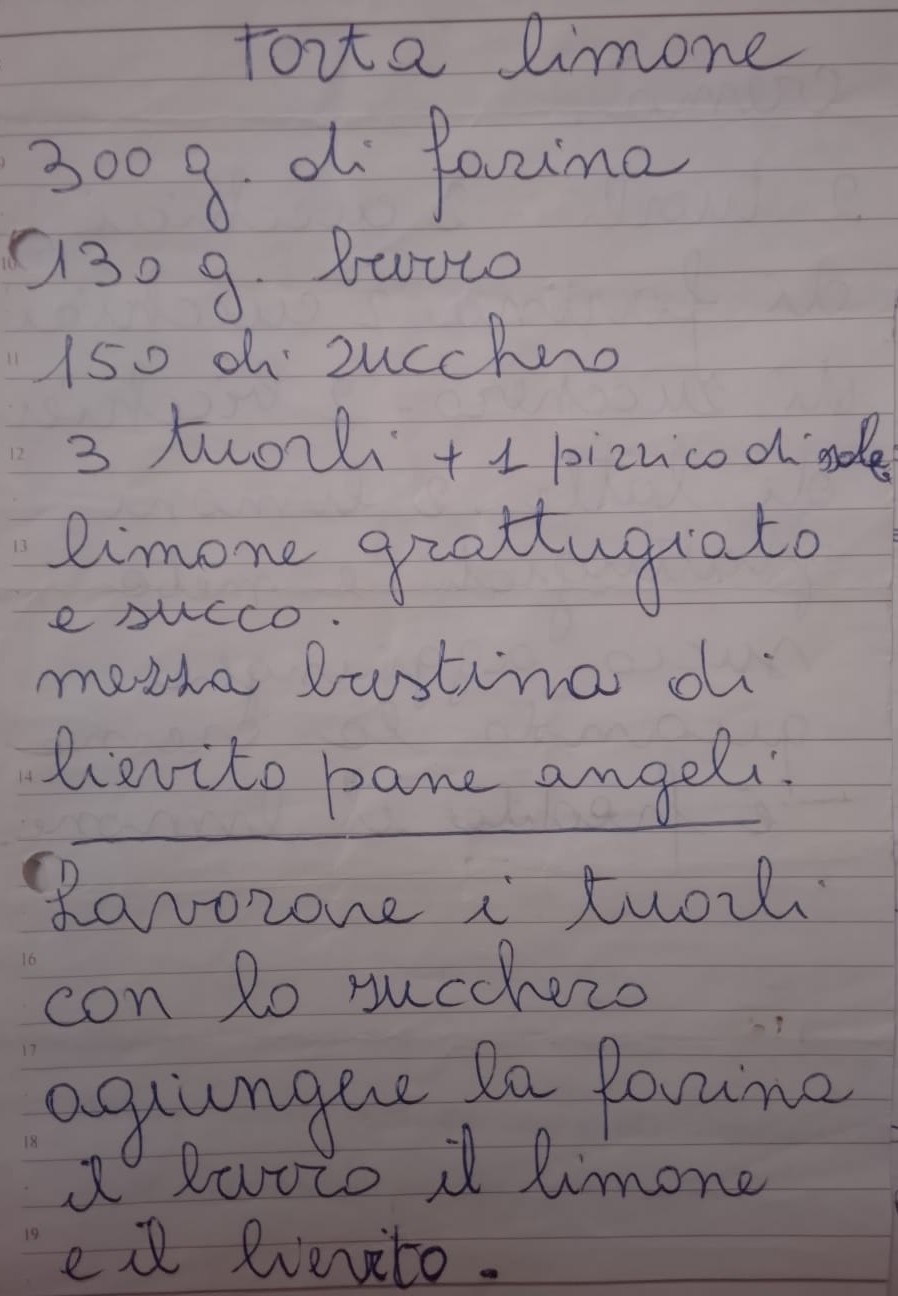 Torta limone
300 g. di farina
130 g. burro
150 di zucchero
3 tuorli + 1 pizzico di sale
limone grattugiato
e succo.
mezza bustina di
lievito pane angeli.
Lavorare i tuorli
con lo zucchero
agiungere la farina
il burro il limone
e il lievito.